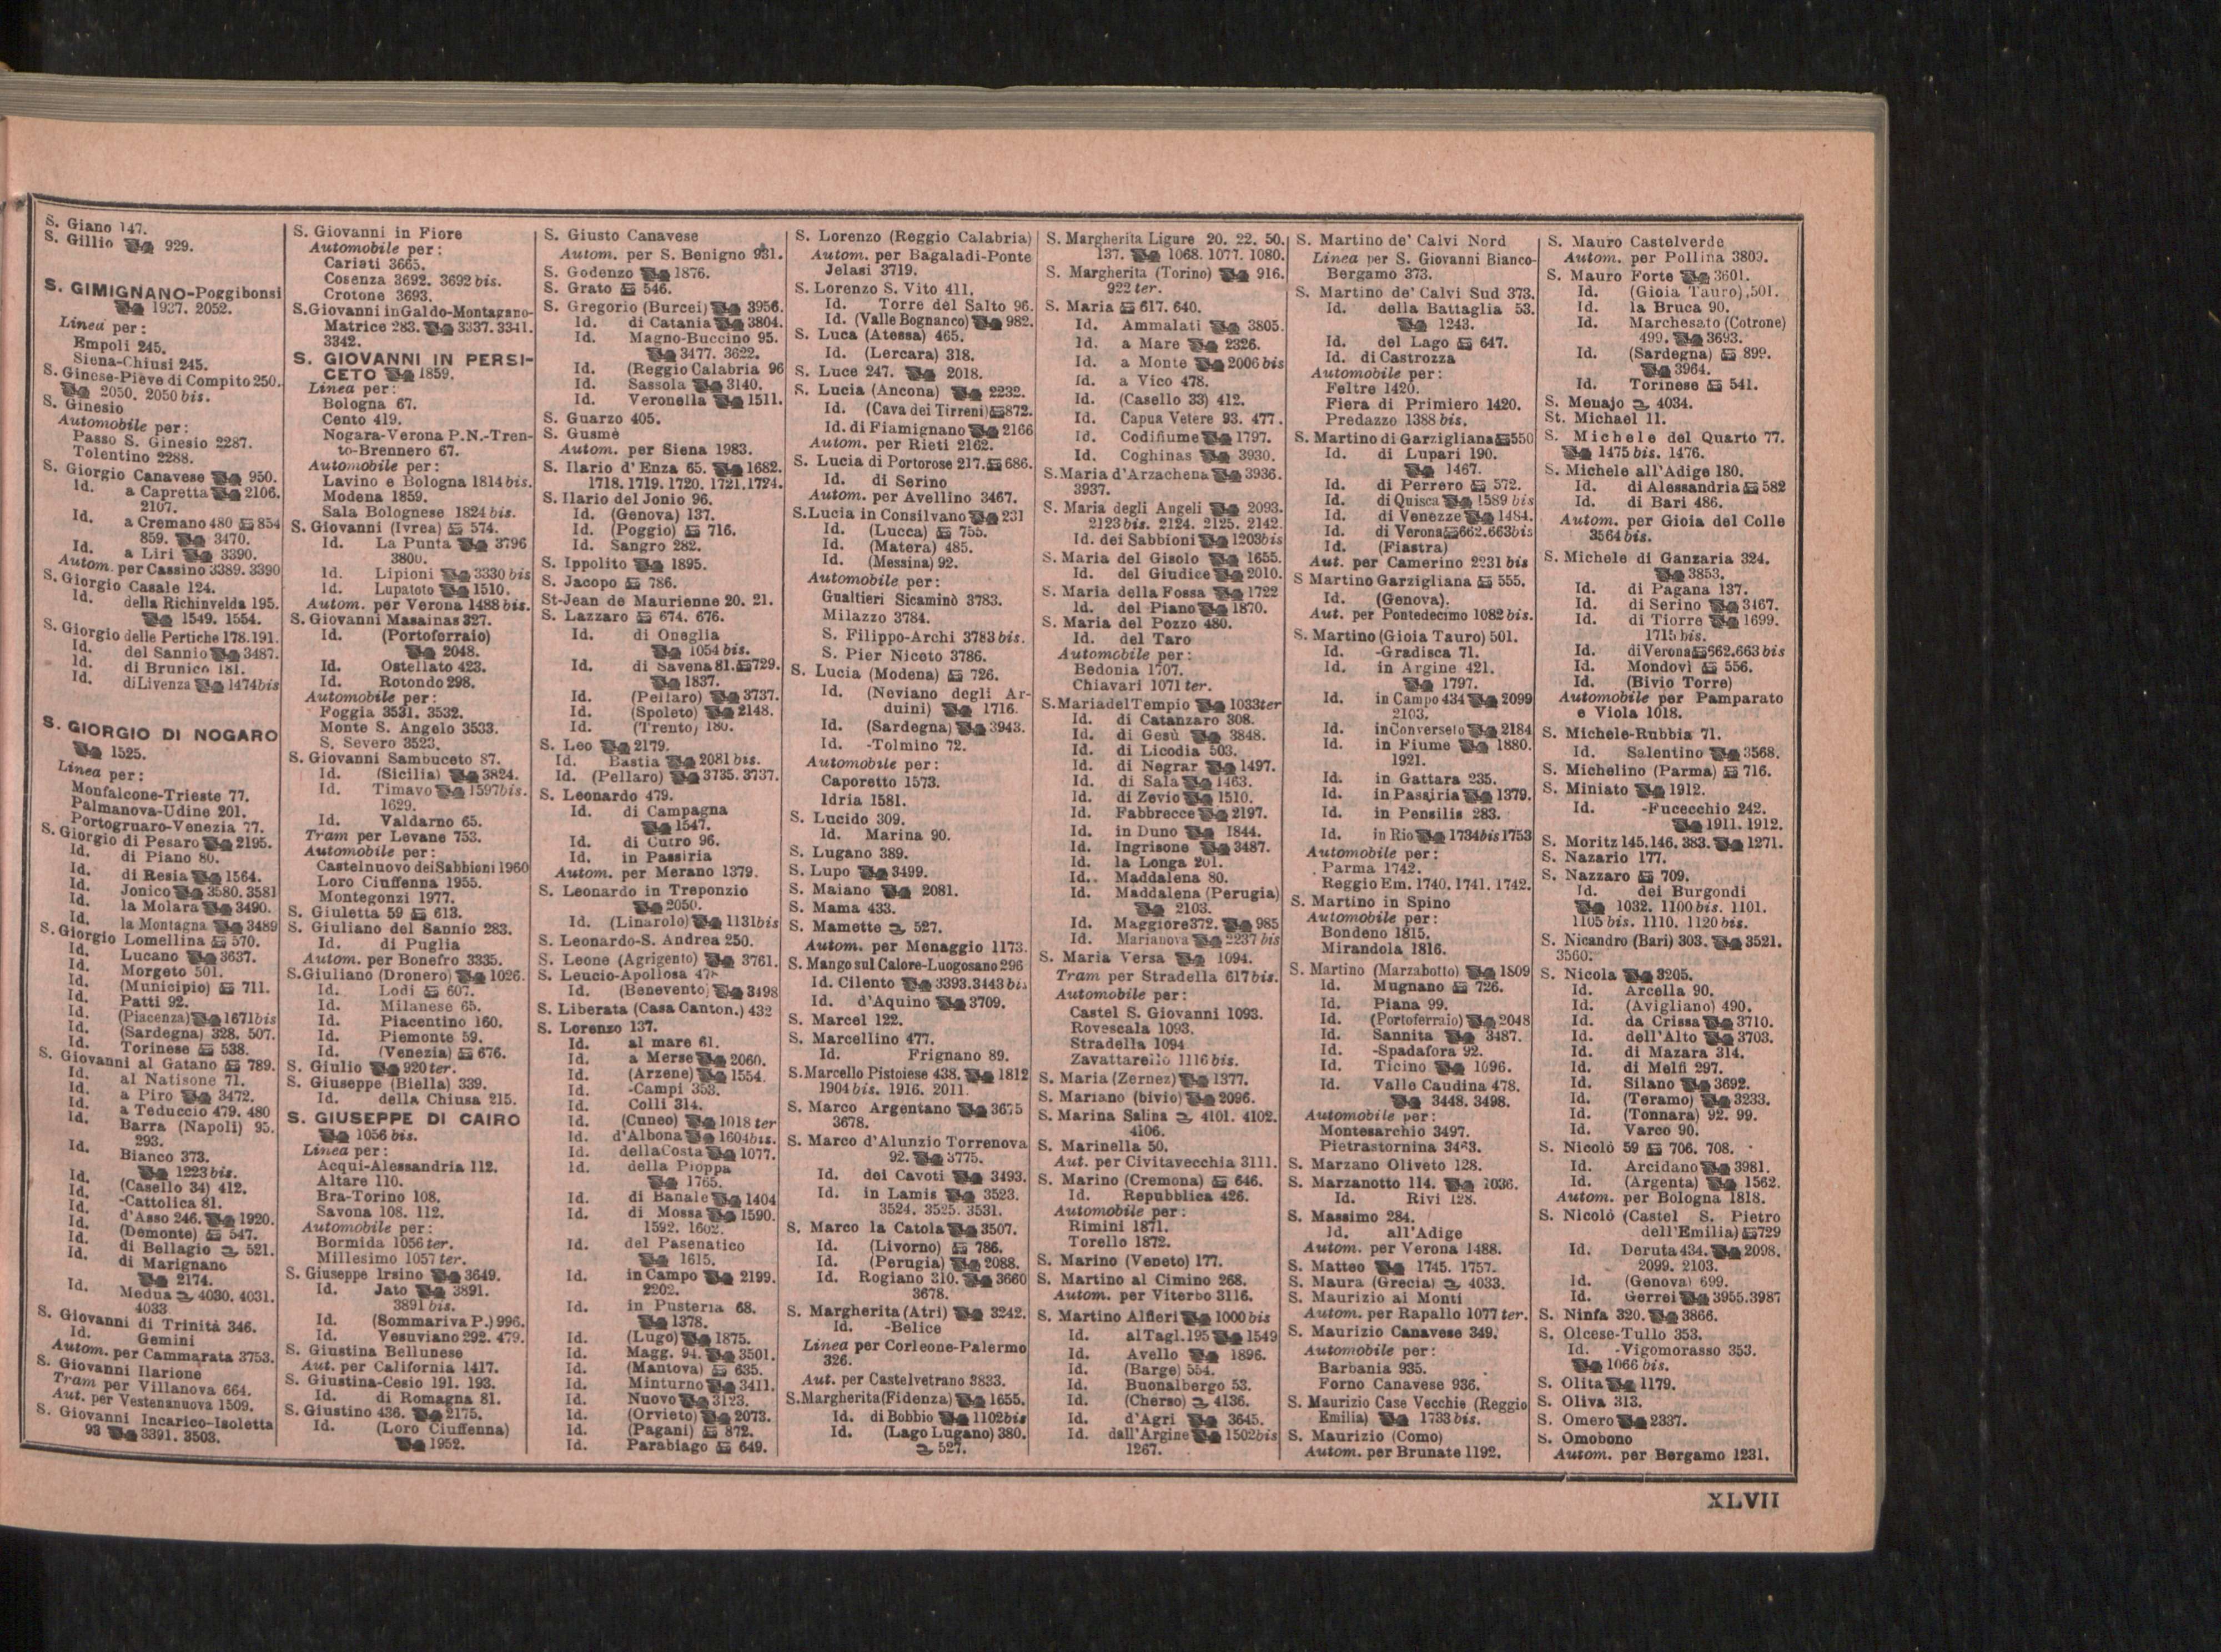 S. Giano 147.
S. Gillio 929.
S. GIMIGNANO-Poggibonsi
1937. 2052.
Linea per:
Empoli 245.
Siena-Chiusi 245.
S. Ginese-Pieve di Compito 250.
2050. 2050 bis.
S. Ginesio
Automobile per:
Passo S. Ginesio 2287.
Tolentino 2288.
S. Giorgio Canavese 950.
Id. a Capretta 2106.
2107.
Id. a Cremano 480 854
859. 3470.
Id. a Liri 3390.
Autom. per Cassino 3389. 3390
S. Giorgio Casale 124.
Id. della Richinvelda 195.
1549. 1554.
S. Giorgio delle Pertiche 178.191.
Id. del Sannio 3487.
Id. di Brunico 181.
Id. di Livenza 1474 bis
S. GIORGIO DI NOGARO
1525.
Linea per:
Monfalcone-Trieste 77.
Palmanova-Udine 201.
Portogruaro-Venezia 77.
S. Giorgio di Pesaro 2195.
Id. di Piano 80.
Id. di Resia 1564.
Id. Jonico 3580. 3581
Id. la Molara 3490.
Id. la Montagna 3489
S. Giorgio Lomellina 570.
Id. Lucano 3637.
Id. Morgeto 501.
Id. (Municipio) 711.
Id. Patti 92.
Id. (Piacenza) 1671 bis
Id. (Sardegna) 328. 507.
Id. Torinese 538.
S. Giovanni al Gatano 789.
Id. al Natisone 71.
Id. a Piro 3472.
Id. a Teduccio 479. 480
Id. Barra (Napoli) 95.
293.
Id. Bianco 373.
1223 bis.
Id. (Casello 34) 412.
Id. -Cattolica 81.
Id. d'Asso 246. 1920.
Id. (Demonte) 547.
Id. di Bellagio 521.
Id. di Marignano
2174.
Id. Medua 4030. 4031.
4033
S. Giovanni di Trinità 346.
Id. Gemini
Autom. per Cammarata 3753.
S. Giovanni Ilarione
Tram per Villanova 664.
Aut. per Vestenanuova 1509.
S. Giovanni Incarico-Isoletta
93 3391. 3503.
S. Giovanni in Fiore
Automobile per:
Cariati 3665.
Cosenza 3692. 3692 bis.
Crotone 3693.
S. Giovanni in Galdo-Montagano-
Matrice 283. 3337. 3341.
3342.
S. GIOVANNI IN PERSI-
CETO 1859.
Linea per:
Bologna 67.
Cento 419.
Nogara-Verona P.N.-Tren-
to-Brennero 67.
Automobile per:
Lavino e Bologna 1814 bis.
Modena 1859.
Sala Bolognese 1824 bis.
S. Giovanni (Ivrea) 574.
Id. La Punta 3796
3800.
Id. Lipioni 3330 bis
Id. Lupatoto 1510.
Autom. per Verona 1488 bis.
S. Giovanni Masainas 327.
Id. (Portoferraio)
2048.
Id. Ostellato 423.
Id. Rotondo 298.
Automobile per:
Foggia 3531. 3532.
Monte S. Angelo 3533.
S. Severo 3523.
S. Giovanni Sambuceto 87.
Id. (Sicilia) 3824.
Id. Timavo 1597 bis.
1629.
Id. Valdarno 65.
Tram per Levane 753.
Automobile per:
Castelnuovo dei Sabbioni 1960
Loro Ciuffenna 1955.
Montegonzi 1977.
S. Giuletta 59 613.
S. Giuliano del Sannio 283.
Id. di Puglia
Autom. per Bonefro 3335.
S. Giuliano (Dronero) 1026.
Id. Lodi 607.
Id. Milanese 65.
Id. Piacentino 160.
Id. Piemonte 59.
Id. (Venezia) 676.
S. Giulio 920 ter.
S. Giuseppe (Biella) 339.
Id. della Chiusa 215.
S. GIUSEPPE DI CAIRO
1056 bis.
Linea per:
Acqui-Alessandria 112.
Altare 110.
Bra-Torino 108.
Savona 108. 112.
Automobile per:
Bormida 1056 ter.
Millesimo 1057 ter.
S. Giuseppe Irsino 3649.
Id. Jato 3891.
3891 bis.
Id. (Sommariva P.) 996.
Id. Vesuviano 292. 479.
S. Giustina Bellunese
Aut. per California 1417.
S. Giustina-Cesio 191. 193.
Id. di Romagna 81.
S. Giustino 436. 2175.
Id. (Loro Ciuffenna)
1952.
S. Giusto Canavese
Autom. per S. Benigno 931.
S. Godenzo 1876.
S. Grato 546.
S. Gregorio (Burcei) 3956.
Id. di Catania 3804.
Id. Magno-Buccino 95.
3477. 3622.
Id. (Reggio Calabria 96
Id. Sassola 3140.
Id. Veronella 1511.
S. Guarzo 405.
S. Gusmè
Autom. per Siena 1983.
S. Ilario d'Enza 65. 1682.
1718. 1719. 1720. 1721. 1724.
S. Ilario del Jonio 96.
Id. (Genova) 137.
Id. (Poggio) 716.
Id. Sangro 282.
S. Ippolito 1895.
S. Jacopo 786.
St-Jean de Maurienne 20. 21.
S. Lazzaro 674. 676.
Id. di Oneglia
1054 bis.
Id. di Savena 81. 729.
1837.
Id. (Pellaro) 3737.
Id. (Spoleto) 2148.
Id. (Trento) 180.
S. Leo 2179.
Id. Bastia 2081 bis.
Id. (Pellaro) 3735. 3737.
S. Leonardo 479.
Id. di Campagna
1547.
Id. di Cutro 96.
Id. in Passiria
Autom. per Merano 1379.
S. Leonardo in Treponzio
2050.
Id. (Linarolo) 1131 bis
S. Leonardo-S. Andrea 250.
S. Leone (Agrigento) 3761.
S. Leucio-Apollosa
Id. (Benevento) 3498
S. Liberata (Casa Canton.) 432
S. Lorenzo 137.
Id. al mare 61.
Id. a Merse 2060.
Id. (Arzene) 1554.
Id. -Campi 353.
Id. Colli 314.
Id. (Cuneo) 1018 ter
Id. d'Albona 1604 bis.
Id. della Costa 1077.
Id. della Pioppa
1765.
Id. di Banale 1404
Id. di Mossa 1590.
1592. 1602.
Id. del Pasenatico
1615.
Id. in Campo 2199.
2202.
Id. in Pusteria 68.
1378.
Id. (Lugo) 1875.
Id. Magg. 94. 3501.
Id. (Mantova) 635.
Id. Minturno 3411.
Id. Nuovo 3123.
Id. (Orvieto) 2073.
Id. (Pagani) 872.
Id. Parabiago 649.
S. Lorenzo (Reggio Calabria)
Autom. per Bagaladi-Ponte
Jelasi 3719.
S. Lorenzo S. Vito 411.
Id. Torre del Salto 96.
Id. (Valle Bognanco) 982.
S. Luca (Atessa) 465.
Id. (Lercara) 318.
S. Luce 247. 2018.
S. Lucia (Ancona) 2232.
Id. (Cava dei Tirreni) 872.
Id. di Fiamignano 2166
Autom. per Rieti 2162.
S. Lucia di Portorose 217. 686.
Id. di Serino
Autom. per Avellino 3467.
S. Lucia in Consilvano 231
Id. (Lucca) 755.
Id. (Matera) 485.
Id. (Messina) 92.
Automobile per:
Gualtieri Sicaminò 3783.
Milazzo 3784.
S. Filippo-Archi 3783 bis.
S. Pier Niceto 3786.
S. Lucia (Modena) 726.
Id. (Neviano degli Ar-
duini) 1716.
Id. (Sardegna) 3943.
Id. -Tolmino 72.
Automobile per:
Caporetto 1573.
Idria 1581.
S. Lucido 309.
Id. Marina 90.
S. Lugano 389.
S. Lupo 3499.
S. Maiano 2081.
S. Mama 433.
S. Mamette 527.
Autom. per Menaggio 1173.
S. Mango sul Calore-Luogosano 296
Id. Cilento 3393. 3443 bis
Id. d'Aquino 3709.
S. Marcel 122.
S. Marcellino 477.
Id. Frignano 89.
S. Marcello Pistoiese 438. 1812
1904 bis. 1916. 2011.
S. Marco Argentano 3675
3678.
S. Marco d'Alunzio Torrenova
92. 3775.
Id. dei Cavoti 3493.
Id. in Lamis 3523.
3524. 3525. 3531.
S. Marco la Catola 3507.
Id. (Livorno) 786.
Id. (Perugia) 2088.
Id. Rogiano 310. 3660
3678.
S. Margherita (Atri) 3242.
Id. -Belice
Linea per Corleone-Palermo
326.
Aut. per Castelvetrano 3833.
S. Margherita (Fidenza) 1655.
Id. di Bobbio 1102 bis
Id. (Lago Lugano) 380.
527.
S. Margherita Ligure 20. 22. 50.
137. 1068. 1077. 1080.
S. Margherita (Torino) 916.
922 ter.
S. Maria 617. 640.
Id. Ammalati 3805.
Id. a Mare 2326.
Id. a Monte 2006 bis
Id. a Vico 478.
Id. (Casello 33) 412.
Id. Capua Vetere 93. 477.
Id. Codifiume 1797.
Id. Coghinas 3930.
S. Maria d'Arzachena 3936.
3937.
S. Maria degli Angeli 2093.
2123 bis. 2124. 2125. 2142.
Id. dei Sabbioni 1203 bis
S. Maria del Gisolo 1655.
Id. del Giudice 2010.
S. Maria della Fossa 1722
Id. del Piano 1870.
S. Maria del Pozzo 480.
Id. del Taro
Automobile per:
Bedonia 1707.
Chiavari 1071 ter.
S. Maria del Tempio 1033 ter
Id. di Catanzaro 308.
Id. di Gesù 3848.
Id. di Licodia 503.
Id. di Negrar 1497.
Id. di Sala 1463.
Id. di Zevio 1510.
Id. Fabbrecce 2197.
Id. in Duno 1844.
Id. Ingrisone 3487.
Id. la Longa 201.
Id. Maddalena 80.
Id. Maddalena (Perugia)
2103.
Id. Maggiore 372. 985
Id. Marianova 2237 bis
S. Maria Versa 1094.
Tram per Stradella 617 bis.
Automobile per:
Castel S. Giovanni 1093.
Rovescala 1093.
Stradella 1094
Zavattarello 1116 bis.
S. Maria (Zernez) 1377.
S. Mariano (bivio) 2096.
S. Marina Salina 4101. 4102.
4106.
S. Marinella 50.
Aut. per Civitavecchia 3111.
S. Marino (Cremona) 646.
Id. Repubblica 426.
Automobile per:
Rimini 1871.
Torello 1872.
S. Marino (Veneto) 177.
S. Martino al Cimino 268.
Autom. per Viterbo 3116.
S. Martino Alfieri 1000 bis
Id. al Tagl. 195 1549
Id. Avello 1896.
Id. (Barge) 554.
Id. Buonalbergo 53.
Id. (Cherso) 4136.
Id. d'Agri 3645.
Id. dall'Argine 1502 bis
1267.
S. Martino de' Calvi Nord
Linea per S. Giovanni Bianco-
Bergamo 373.
S. Martino de' Calvi Sud 373.
Id. della Battaglia 53.
1243.
Id. del Lago 647.
Id. di Castrozza
Automobile per:
Feltre 1420.
Fiera di Primiero 1420.
Predazzo 1388 bis.
S. Martino di Garzigliana 550
Id. di Lupari 190.
1467.
Id. di Perrero 572.
Id. di Quisca 1589 bis
Id. di Venezze 1484.
Id. di Verona 662. 663 bis
Id. (Fiastra)
Aut. per Camerino 2231 bis
S Martino Garzigliana 555.
Id. (Genova).
Aut. per Pontedecimo 1082 bis.
S. Martino (Gioia Tauro) 501.
Id. -Gradisca 71.
Id. in Argine 421.
1797.
Id. in Campo 434 2099
2103.
Id. in Converseto 2184
Id. in Fiume 1880.
1921.
Id. in Gattara 235.
Id. in Passiria 1379.
Id. in Pensilis 283.
Id. in Rio 1734 bis 1753
Automobile per:
Parma 1742.
Reggio Em. 1740. 1741. 1742.
S. Martino in Spino
Automobile per:
Bondeno 1815.
Mirandola 1816.
S. Martino (Marzabotto) 1809
Id. Mugnano 726.
Id. Piana 99.
Id. (Portoferraio) 2048
Id. Sannita 3487.
Id. -Spadafora 92.
Id. Ticino 1096.
Id. Valle Caudina 478.
3448. 3498.
Automobile per:
Montesarchio 3497.
Pietrastornina
S. Marzano Oliveto 128.
S. Marzanotto 114. 1036.
Id. Rivi 128.
S. Massimo 284.
Id. all'Adige
Autom. per Verona 1488.
S. Matteo 1745. 1757.
S. Maura (Grecia) 4033.
S. Maurizio ai Monti
Autom. per Rapallo 1077 ter.
S. Maurizio Canavese 349.
Automobile per:
Barbania 935.
Forno Canavese 936.
S. Maurizio Case Vecchie (Reggio
Emilia) 1733 bis.
S. Maurizio (Como)
Autom. per Brunate 1192.
S. Mauro Castelverde
Autom. per Pollina 3809.
S. Mauro Forte 3601.
Id. (Gioia Tauro) 501.
Id. la Bruca 90.
Id. Marchesato (Cotrone)
499. 3693.
Id. (Sardegna) 899.
3964.
Id. Torinese 541.
S. Menajo 4034.
St. Michael 11.
S. Michele del Quarto 77.
1475 bis. 1476.
S. Michele all'Adige 180.
Id. di Alessandria 582
Id. di Bari 486.
Autom. per Gioia del Colle
3564 bis.
S. Michele di Ganzaria 324.
3853.
Id. di Pagana 137.
Id. di Serino 3467.
Id. di Tiorre 1699.
1715 bis.
Id. di Verona 662. 663 bis
Id. Mondovì 556.
Id. (Bivio Torre)
Automobile per Pamparato
e Viola 1018.
S. Michele-Rubbia 71.
Id. Salentino 3568.
S. Michelino (Parma) 716.
S. Miniato 1912.
Id. -Fucecchio 242.
1911. 1912.
S. Moritz 145. 146. 383. 1271.
S. Nazario 177.
S. Nazzaro 709.
Id. dei Burgondi
1032. 1100 bis. 1101.
1105 bis. 1110. 1120 bis.
S. Nicandro (Bari) 303. 3521.
3560.
S. Nicola 3205.
Id. Arcella 90.
Id. (Avigliano) 490.
Id. da Crissa 3710.
Id. dell'Alto 3703.
Id. di Mazara 314.
Id. di Melfi 297.
Id. Silano 3692.
Id. (Teramo) 3233.
Id. (Tonnara) 92. 99.
Id. Varco 90.
S. Nicolò 59 706. 708.
Id. Arcidano 3981.
Id. (Argenta) 1562.
Autom. per Bologna 1818.
S. Nicolò (Castel S. Pietro
dell'Emilia) 729
Id. Deruta 434. 2098.
2099. 2103.
Id. (Genova) 699.
Id. Gerrei 3955. 3987
S. Ninfa 320. 3866.
S. Olcese-Tullo 353.
Id. -Vigomorasso 353.
1066 bis.
S. Olita 1179.
S. Oliva 313.
S. Omero 2337.
S. Omobono
Autom. per Bergamo 1231.
XLVII